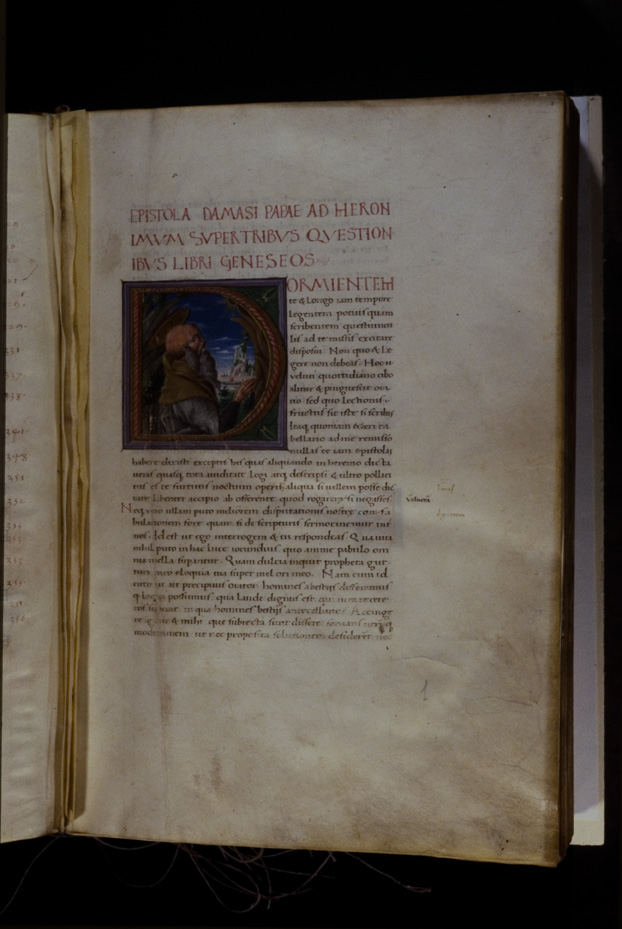 EPISTOLA DAMASI PAPAE AD HERON
IMVM SVPER TRIBVS QVESTION
IBVS LIBRI GENESEOS
DORMIENTEM
te & longo iam tempore
legentem potius quam
scribentem questiuncu
lis ad te missis excitare
disposui. Non quo & le
gere non debeas. Hoc n
veluti quottidiano cibo
alitur & pinguescit ora
tio. sed quo lectionis
fructus sit iste si scribis
Itaq quoniam & heri ta
bellario ad me remisso
nullas te iam epistolas
habere dixisti exceptis his quas aliquando in heremo dicta
veras quasq tota auiditate legi atq descripsi & ultro pollici
tus es te furtiuis noctium operis aliqua si uellem posse dic
tare libenter accipio ab offerente quod rogare si negasses.
Neq uero ullam puto digniorem disputationis nostre confa
bulationem fore quam si de scripturis sermocinemur inter
nos. Id est ut ego interrogem & tu respondeas. Qua uita
nihil puto in hac luce iocundius. quo anime pabulo om
nia mella superantur. Quam dulcia inquit propheta gut
turi meo eloquia tua super mel ori meo. Nam cum id
circo ut ait precipuus orator homines a bestiis differamus
q loqui possumus. qua laude dignus est qui in ea re cete
ros superat in qua homines bestias antecellant. Accinge
te igitur & mihi que subiecta sunt dissere seruans utriq
moderamen ut nec proposita solutionem desiderent nec
1